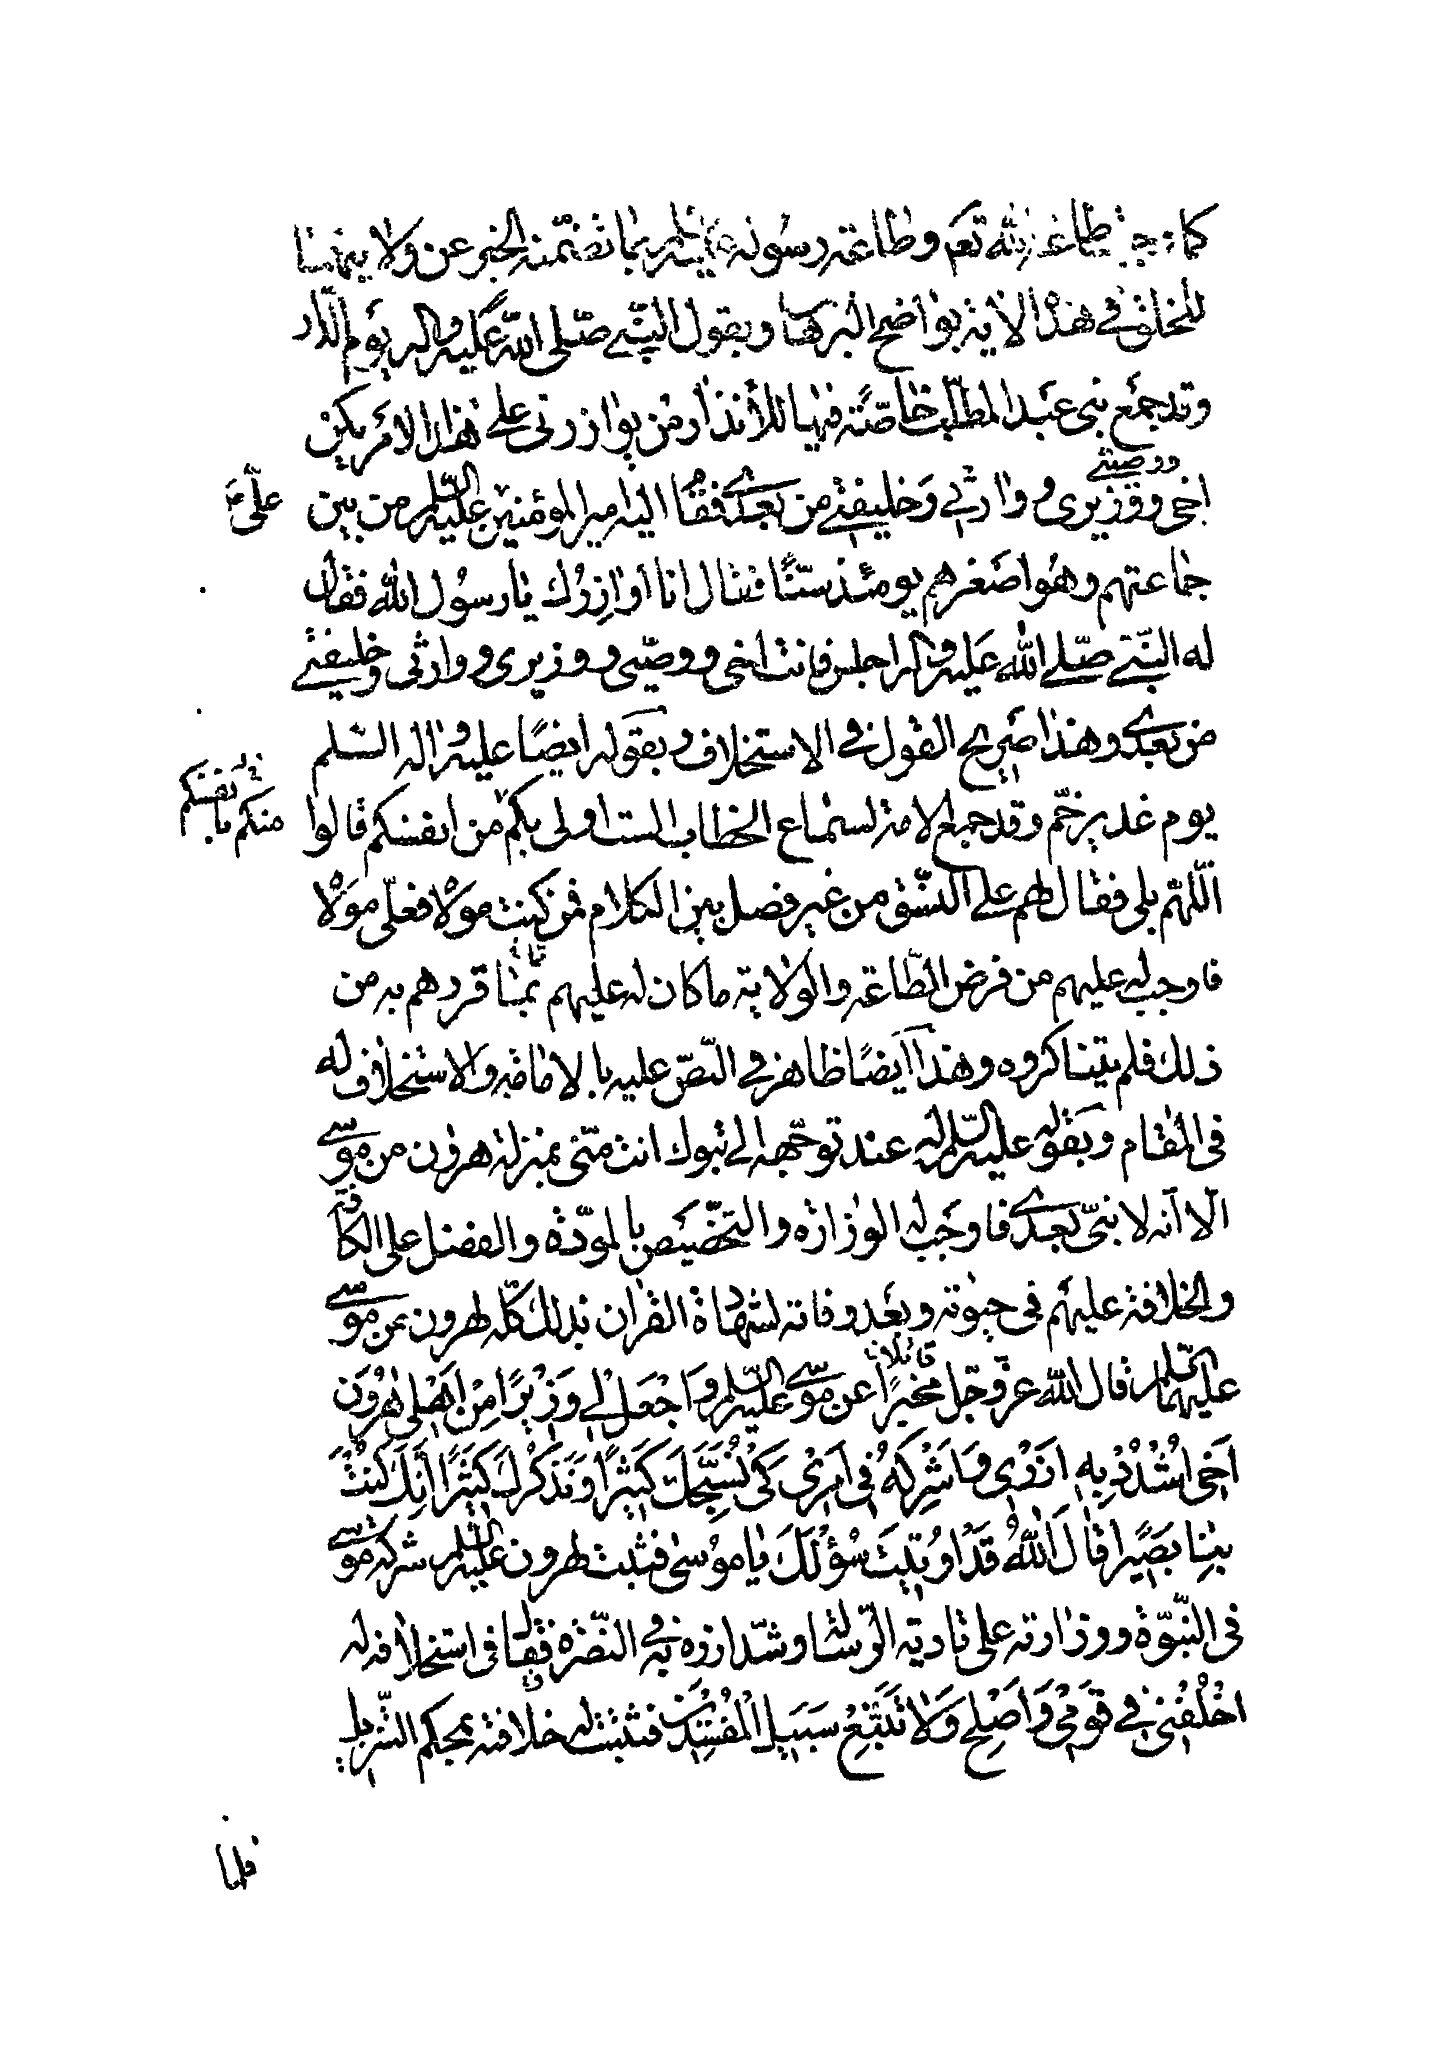 كما وجبت طاعة الله تعم وطاعة رسوله بما تضمنه الخبر عن ولايتهما
للخلق في هذا الاية بواضح البرهان وبقول النبي صلى الله عليه واله يوم الدار
وقد جمع بني عبد المطلب خاصّة فيها للأنذار من يوازرني على هذا الامر يكن
اخي ووصيتي ووزيري ووارثي وخليفتي من بعدي فقام اليه امير المؤمنين عليه السلم من بين
علي ع
جماعتهم وهو اصغرهم يومئذ سنًّا فقال انا اوازرك يا رسول الله فقال
له النبي صلى الله عليه واله اجلس فانت اخي ووصيّى ووزيرى ووارثى وخليفتي
من بعدي وهذا صريح القول في الاستخلاف وبقوله ايضًا عليه واله السلم
يوم غدير خمّ وقد جمع الامة لسماع الخطاب الست اولى بكم من انفسكم قالوا
منكم بانفسكم
اللهمّ بلى فقال لهم على النسق من غير فصل بين الكلام فمن كنت مولاه فعليّ مولاه
فاوجب له عليهم من فرض الطّاعة والولاية ما كان له عليهم بما قررهم به من
ذلك فلم يتناكروه وهذا ايضًا ظاهر في النصّ عليه بالامامة والاستخلاف له
فى المقام وبقوله عليه السلم له عند توجّهه الى تبوك انت منّى بمنزلة هرون من موسى
الّا انّه لا نبيّ بعدي فاوجب له الوزارة والتخصّيص بالمودّة والفضل على الكافّة
والخلافة عليهم في حيوته وبعد وفاته لشهادة القران بذلك كلّه لهرون من موسى
عليهما السلم قال الله عزّ وجلّ مخبرًا عن موسى عليه السلم قائلا وَاجْعَلْ لي وَزِيرًا مِنْ اَهْلي هٰرُونَ
اَخي اشْدُدْ بِهِ اَزْري وَاَشْرِكْهُ في اَمْري كَيْ نُسَبِّحَكَ كَثِيرًا وَنَذْكُرَكَ كَثِيرًا اِنَّكَ كُنْتَ
بِنَا بَصِيرًا قَالَ اللهُ قَدْ اُوتِيتَ سُؤْلَكَ يَا مُوسى فثبت لهرون عليه السلم شركة موسى
فى النّبوّة ووزارته على تادية الرّسالة وشدّ ازره به في النصرة فقال في استخلافه له
اخْلُفْني في قَوْمي وَاَصْلِحْ وَلَا تَتَّبِعْ سَبيلَ الْمُفْسِدينَ فثبتت له خلافته بمحكم التنزيل
فلما